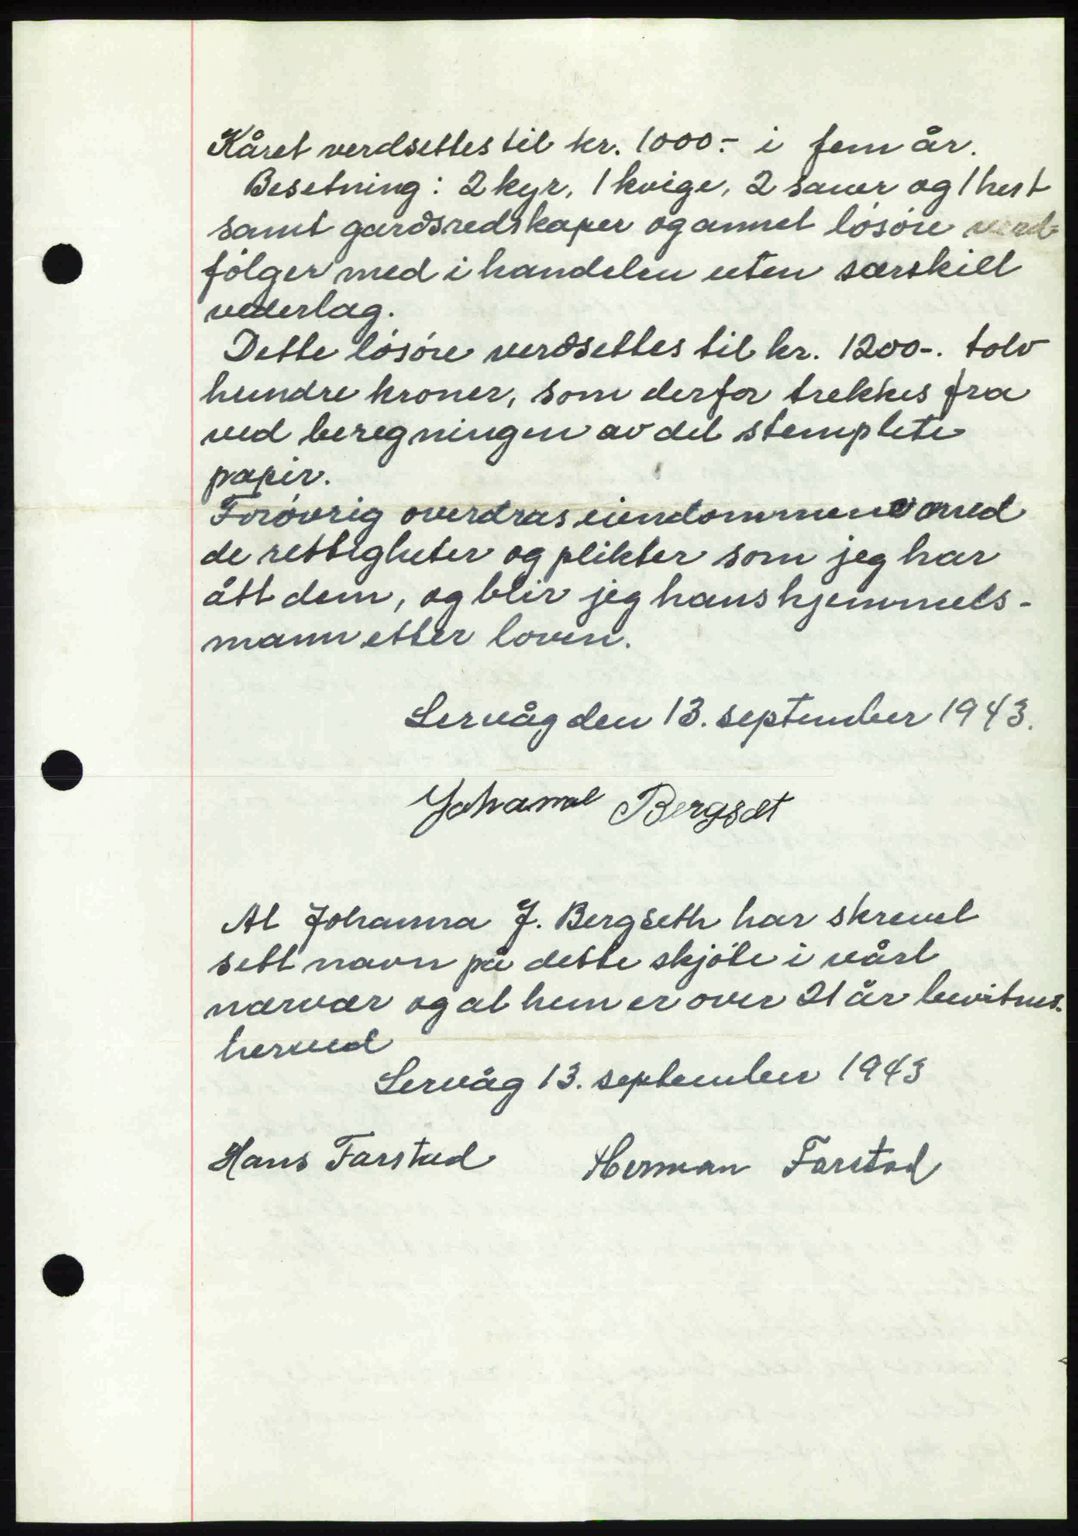 Kåret verdsettes til kr. 1000.- i fem år.
Besetning: 2 kyr, 1 kvige, 2 sauer og 1 hest
samt gardsredskaper og annet lösöre verd
fölger med i handelen uten særskilt
vederlag.
Dette lösöre verdsettes til kr. 1200-. tolv
hundre kroner, som derfor trekkes fra
ved beregningen av det stemplete
papir.
Forövrig overdras eiendommene med
de rettigheter og plikter som jeg har
ått dem, og blir jeg hans hjemmels-
mann etter loven.
Lervåg den 13. september 1943.
Johanna Bergset
At Johanna J. Bergseth har skrevet
sitt navn på dette skjöte i vårt
nærvær og at hun er over 21 år bevitnes
herved
Lervåg 13. september 1943
Hans Farstad Herman Farstad